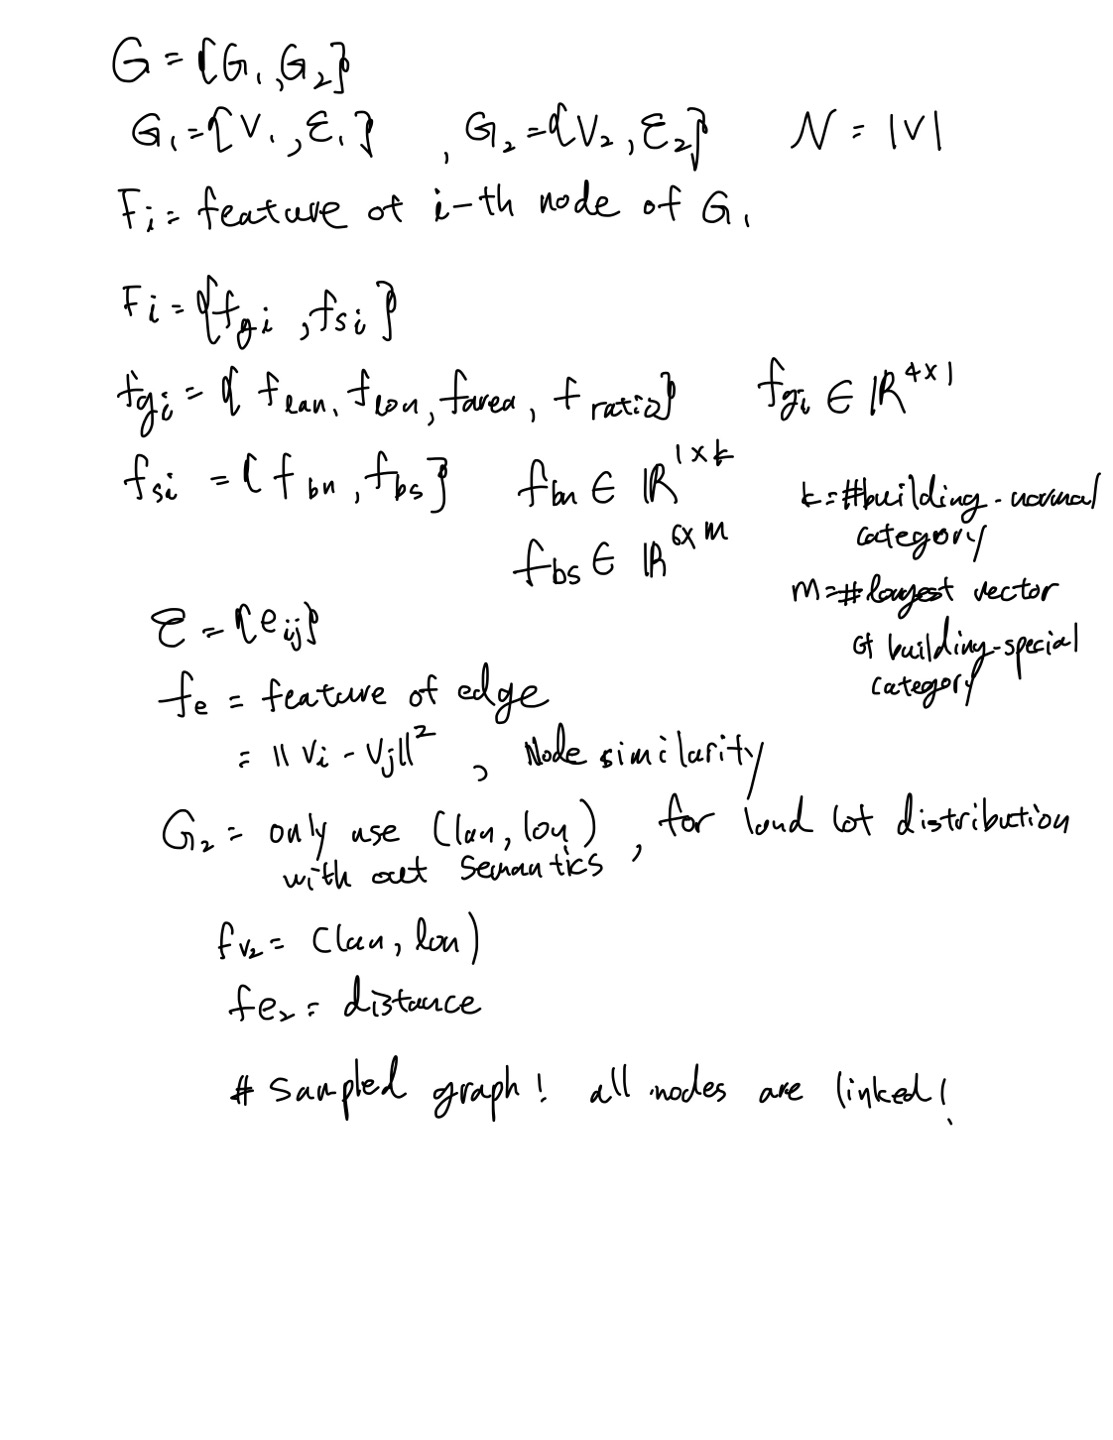 G = {G₁, G₂}
G₁ = {V₁, ℰ₁} , G₂ = {V₂, ℰ₂} N = |V|
Fi = feature of i-th node of G₁
Fi = {fgi, fsi}
fgi = { flan, flon, farea, fratio} fgi ∈ ℝ^4×1
fsi = {fbn, fbs} fbn ∈ ℝ^1×k
k = #building-normal category
fbs ∈ ℝ^6×m
m = #longest vector of building-special category
ℰ = {eij}
fe = feature of edge
= ||Vi - Vj||² , Node similarity
G₂ = only use (lan, lon) , for land lot distribution
with out semantics
fv₂ = (lan, lon)
fe₂ = distance
# Sampled graph! all nodes are linked!